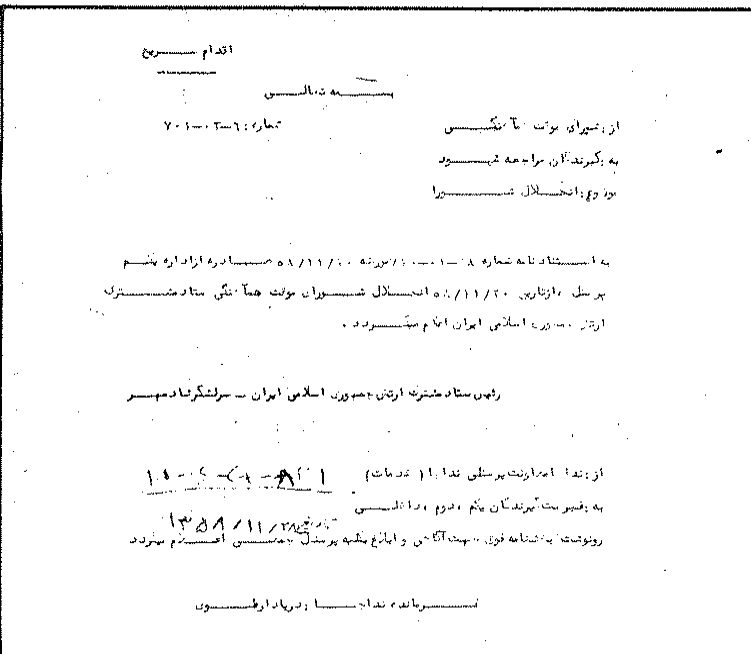 اقدام ســریع
بسمه تعالــی
از: شورای موقت هماهنگــی
شماره: ۶-۰۲-۷۰۱
به: گیرندگان مراجعه شــود
موضوع: انحــلال شــورا
به اســتناد نامه شماره مورخه ۵۸/۱۱/ صــادره از اداره یکــم
پرسنلی، از تاریخ ۵۸/۱۱/۲۰ انحــلال شــورای موقت هماهنگی ستاد مشتــرک
ارتش جمهوری اسلامی ایران اعلام میگــردد.
رئیس ستاد مشترک ارتش جمهوری اسلامی ایران ــ سرلشکر شــاد مهــر
از: نداجا (معاونت پرسنلی نداجا (خدمات)
به: فهرست گیرندگان یکم، دوم، داخلــی
تاریخ ۱۳۵۸/۱۱/۲۸
رونوشت بخشنامه فوق جهت آگاهی و ابلاغ بکلیه پرسنل جمعــی اعــلام میگردد
فــرمانده نداجــا: دریادار علــوی